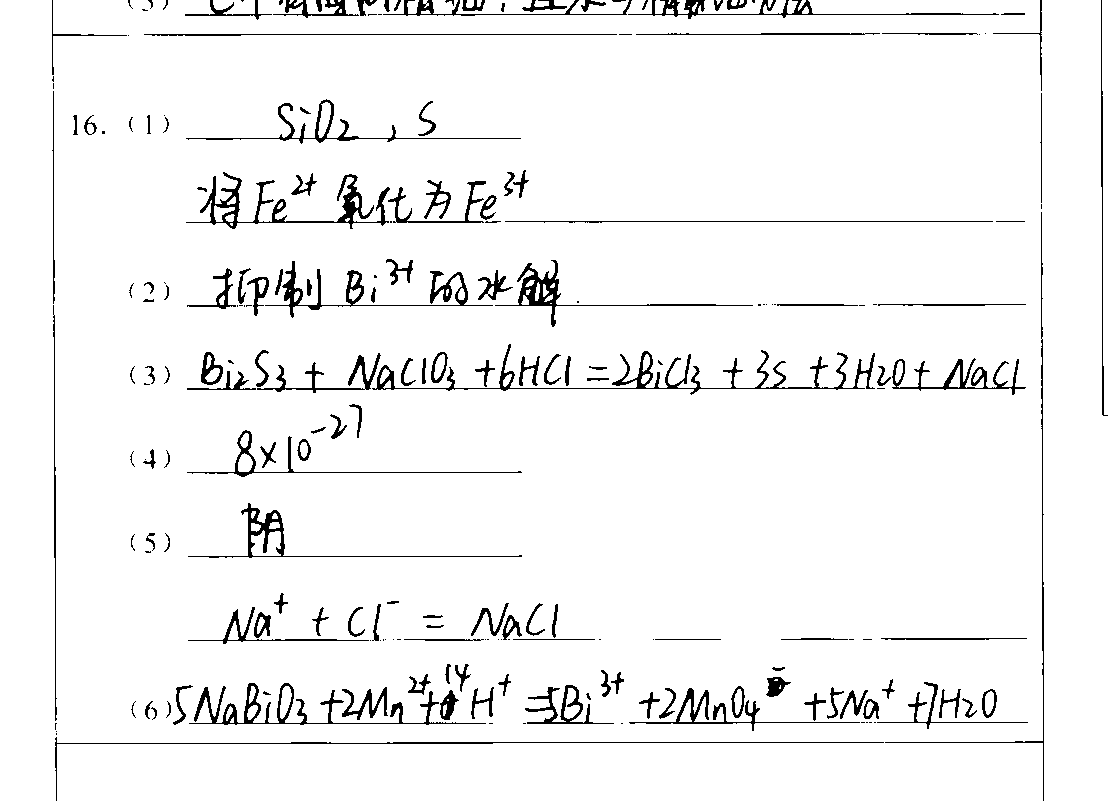 16.(1) SiO2,S
将Fe²⁺氧化为Fe³⁺
(2) 抑制Bi³⁺的水解.
(3) Bi2S3+NaClO3+6HCl=2BiCl3+3S+3H2O+NaCl
(4) 8×10⁻²⁷
(5) 阴
Na⁺+Cl⁻=NaCl
(6) 5NaBiO3+2Mn²⁺+14H⁺=5Bi³⁺+2MnO4⁻+5Na⁺+7H2O